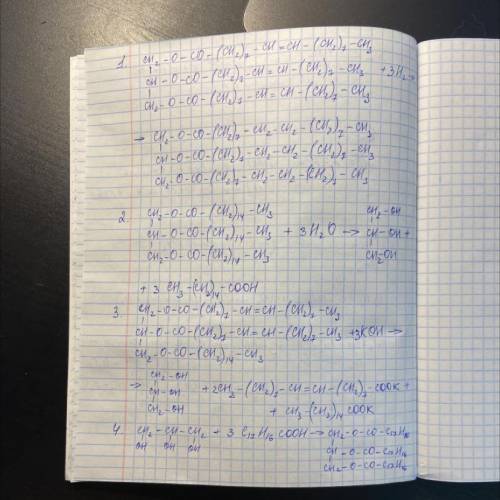 1. CH₂ - O - CO - (CH₂)₇ - CH = CH - (CH₂)₇ - CH₃
CH - O - CO - (CH₂)₇ - CH = CH - (CH₂)₇ - CH₃ + 3H₂ →
CH₂ - O - CO - (CH₂)₇ - CH = CH - (CH₂)₇ - CH₃
→ CH₂ - O - CO - (CH₂)₇ - CH₂ - CH₂ - (CH₂)₇ - CH₃
CH - O - CO - (CH₂)₇ - CH₂ - CH₂ - (CH₂)₇ - CH₃
CH₂ - O - CO - (CH₂)₇ - CH₂ - CH₂ - (CH₂)₇ - CH₃
2. CH₂ - O - CO - (CH₂)₁₄ - CH₃ CH₂ - OH
CH - O - CO - (CH₂)₁₄ - CH₃ + 3H₂O → CH - OH +
CH₂ - O - CO - (CH₂)₁₄ - CH₃ CH₂OH
+ 3 CH₃ - (CH₂)₁₄ - COOH
3. CH₂ - O - CO - (CH₂)₇ - CH = CH - (CH₂)₇ - CH₃
CH - O - CO - (CH₂)₇ - CH = CH - (CH₂)₇ - CH₃ + 3KOH →
CH₂ - O - CO - (CH₂)₁₄ - CH₃
→ CH₂ - OH
CH - OH + 2CH₃ - (CH₂)₇ - CH = CH - (CH₂)₇ - COOK +
CH₂ - OH + CH₃ - (CH₂)₁₄ COOK
4. CH₂ - CH - CH₂ + 3 COOH → CH₂ - O - CO -
OH OH OH CH - O - CO -
CH₂ - O - CO -